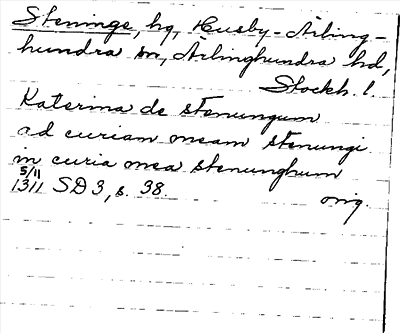 Steninge, hg, Husby-Ärling-
hundra sn, Ärlinghundra hd,
Stockh. l.
Katerina de stenungum
ad curiam meam stenungi
in curia mea stenunghum
5/11
1311 SD 3, s. 38. orig.